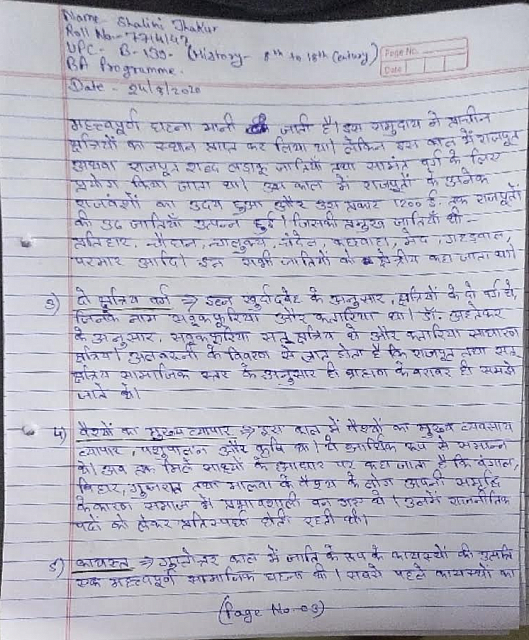 Name- Shalini Thakur
Roll No- 7714147
UPC- B-139- (History- 8th to 18th Century)
Page No.
BA Programme.
Date
Date - 24/8/2020
महत्त्वपूर्ण घटना मानी जाती है। इस समुदाय ने प्राचीन
क्षत्रियों का स्थान प्राप्त कर लिया था। लेकिन इस काल में राजपूत
अथवा राजपूत शब्द लड़ाकू जातियों तथा सामंत वर्ग के लिए
प्रयोग किया जाता था। इस काल में राजपूतों के अनेक
राजवंशों का उदय हुआ और इस प्रकार 1200 ई. तक राजपूतों
की 36 जातियाँ उत्पन्न हुई। जिसकी प्रमुख जातियाँ थी -
प्रतिहार, चौहान, चालुक्य, चंदेल, कछवाहा, मेद, गहड़वाल,
परमार आदि। इन सभी जातियों को क्षत्रीय कहा जाता था।
3) दो क्षत्रिय वर्ग ⇒ इब्न खुर्दादबेह के अनुसार, क्षत्रियों के दो वर्ग थे,
जिनके नाम सबूकफूरिया और कतारिया था। डॉ. अल्तेकर
के अनुसार, सबूकफूरिया सत् क्षत्रिय थे और कतारिया साधारण
क्षत्रिय। अलबरूनी के विवरण से ज्ञात होता है कि राजपूत तथा सत्
क्षत्रिय सामाजिक स्तर के अनुसार ही ब्राह्मण के बराबर ही समझे
जाते थे।
4) वैश्यों का मुख्य व्यापार ⇒ इस काल में वैश्यों का मुख्य व्यवसाय
व्यापार, पशुपालन और कृषि था। वे आर्थिक रूप से सम्पन्न
थे। अब तक मिले साक्ष्यों के आधार पर कहा जाता है कि बंगाल,
बिहार, गुजरात तथा मालवा के वैश्य के लोग अपनी समृद्धि
के कारण समाज में प्रभावशाली बन गए थे। उनमें राजनीतिक
पदों को लेकर प्रतिस्पर्धा होती रहती थी।
5) कायस्त ⇒ गुप्तोत्तर काल में जाति के रूप के कायस्थों की उत्पत्ति
एक महत्वपूर्ण सामाजिक घटना थी। सबसे पहले कायस्थों का
(Page No-03)